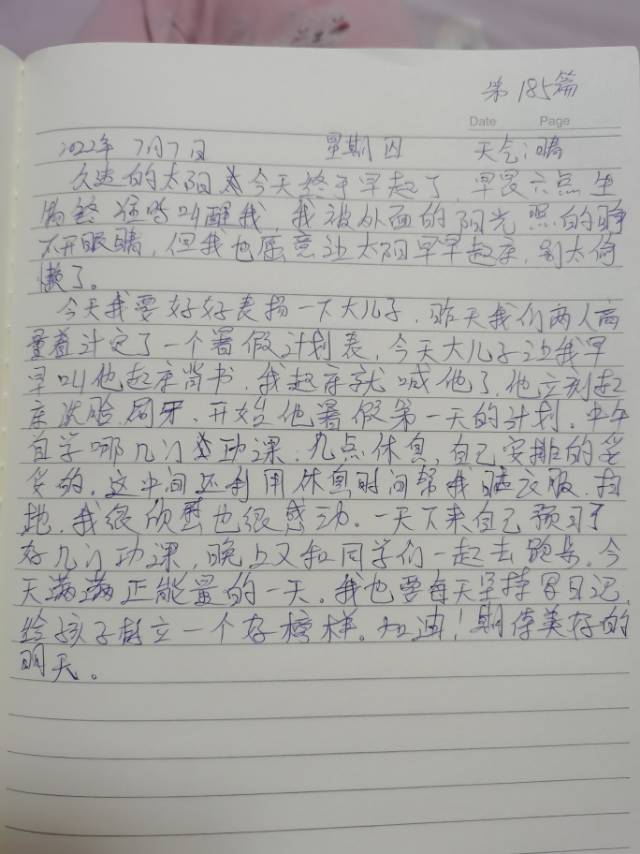 第185篇
Date Page
2022年 7月7日 星期四 天气:晴
久违的太阳今天终于早起了,早晨六点生
物钟准时叫醒我,我被外面的阳光照的睁
不开眼睛,但我也愿意让太阳早早起床,别太偷
懒了。
今天我要好好表扬一下大儿子,昨天我们两人商
量着计定了一个暑假计划表,今天大儿子让我早
早叫他起床背书,我起床就喊他了,他立刻起
床洗脸、刷牙、开始他暑假第一天的计划,上午
自学哪几门功课,几点休息,自己安排的妥
妥的,这中间还利用休息时间帮我晒衣服、扫
地,我很欣慰也很感动。一天下来自己预习了
好几门功课,晚上又和同学们一起去跑步,今
天满满正能量的一天。我也要每天坚持写日记,
给孩子树立一个好榜样。加油!期待美好的
明天。